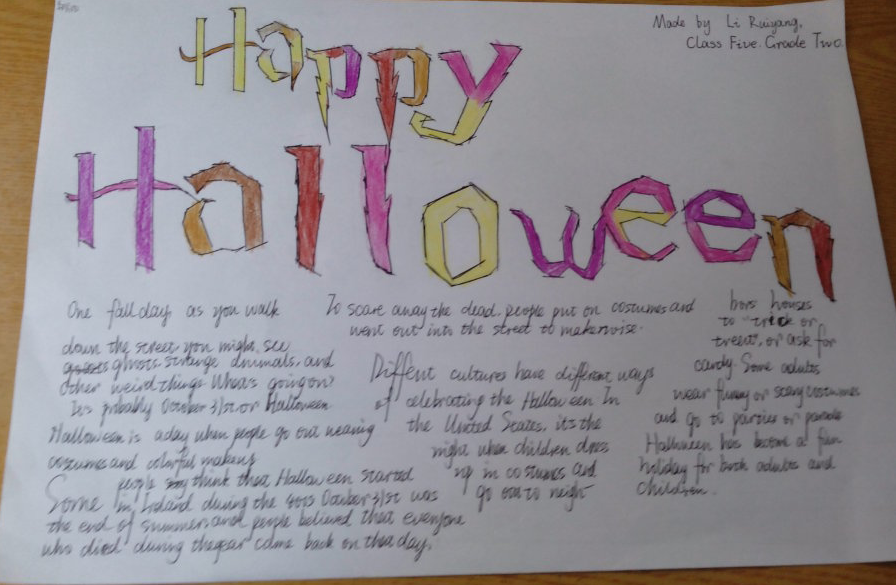 Made by Li Ruiyang,
Class Five. Grade Two
Happy
Halloween
One fall day, as you walk
down the street, you might see
ghosts, strange animals, and
other weird things. What's going on?
It's probably October 31st or Halloween
Halloween is a day when people go out wearing
costumes and colorful makeup
Some people think that Halloween started
in Ireland during the 400s October 31st was
the end of summer, and people believed that everyone
who died during the year came back on that day.
To scare away the dead, people put on costumes and
went out into the street to make noise.
Diffent cultures have different ways
of celebrating the Halloween In
the United States, it's the
night when children dress
up in costumes and
go out to neigh
bors houses
to "trick or
treat", or ask for
candy. Some adults
wear funny or scary costumes
and go to parties or parade
Halloween has become a fun
holiday for both adults and
children.